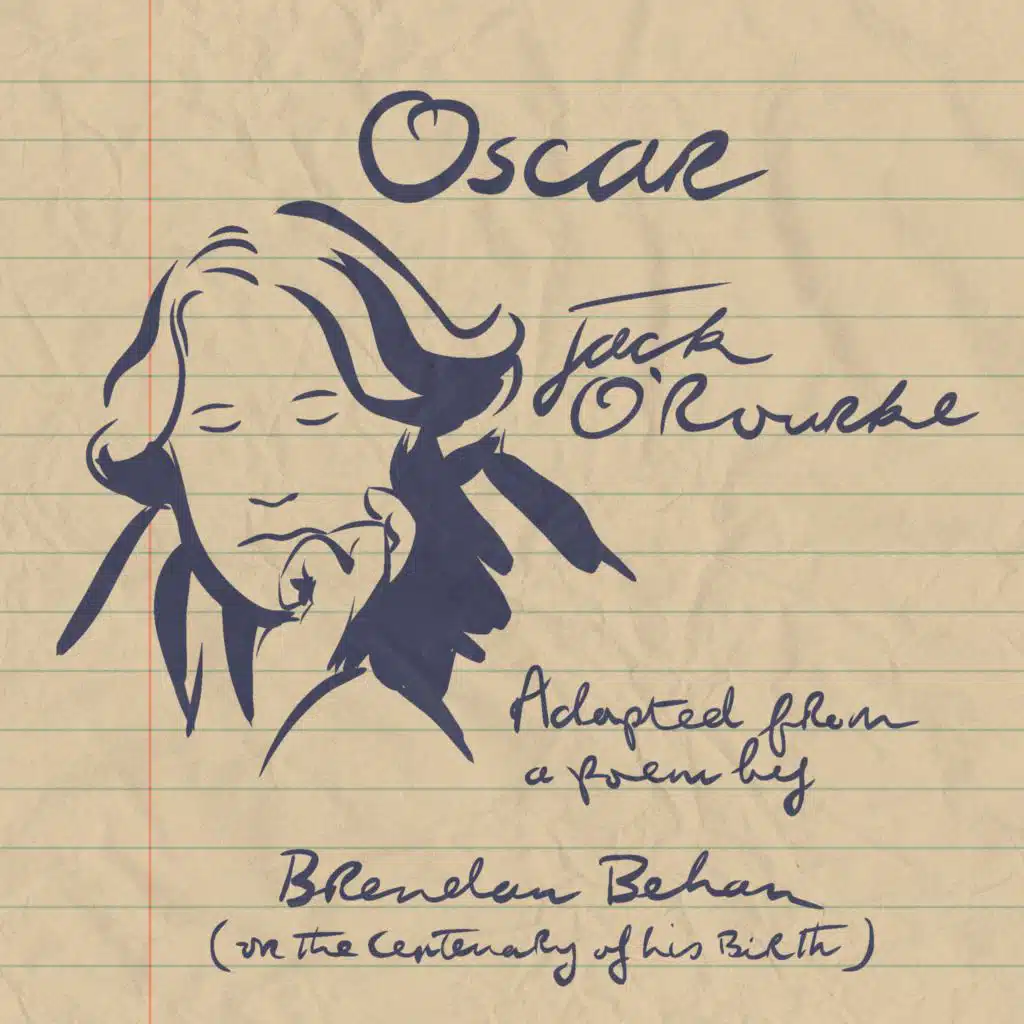 Oscar
Jack
O'Rourke
Adapted from
a poem by
Brendan Behan
(on the Centenary of his Birth)